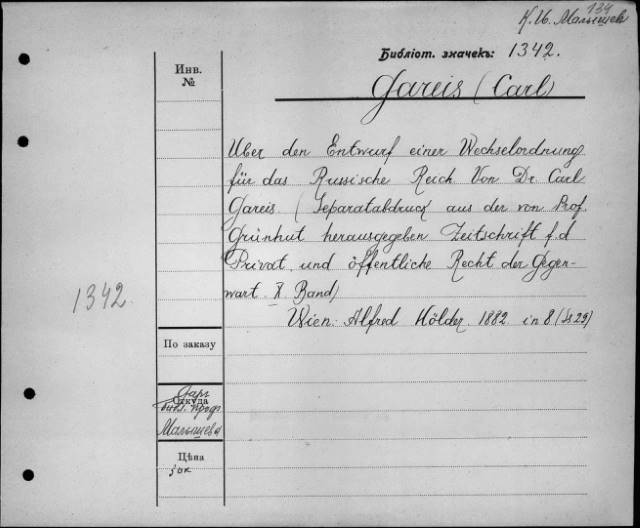 134
К. И. Малышев
Библіот. значекъ: 1342.
Инв.
№
Gareis (Carl)
Uber den Entwurf einer Wechselordnung
für das Russische Reich. Von Dr. Carl
Gareis. (Separatabdruck aus der von Prof.
Grünhut herausgegeben Zeitschrift f. d
Privat. und öffentliche Recht der Gegen-
wart. X Band)
Wien. Alfred Hölder. 1882. in 8 (
1342.
По заказу
Даръ
Откуда
библ. проф.
Малышева
Цѣна